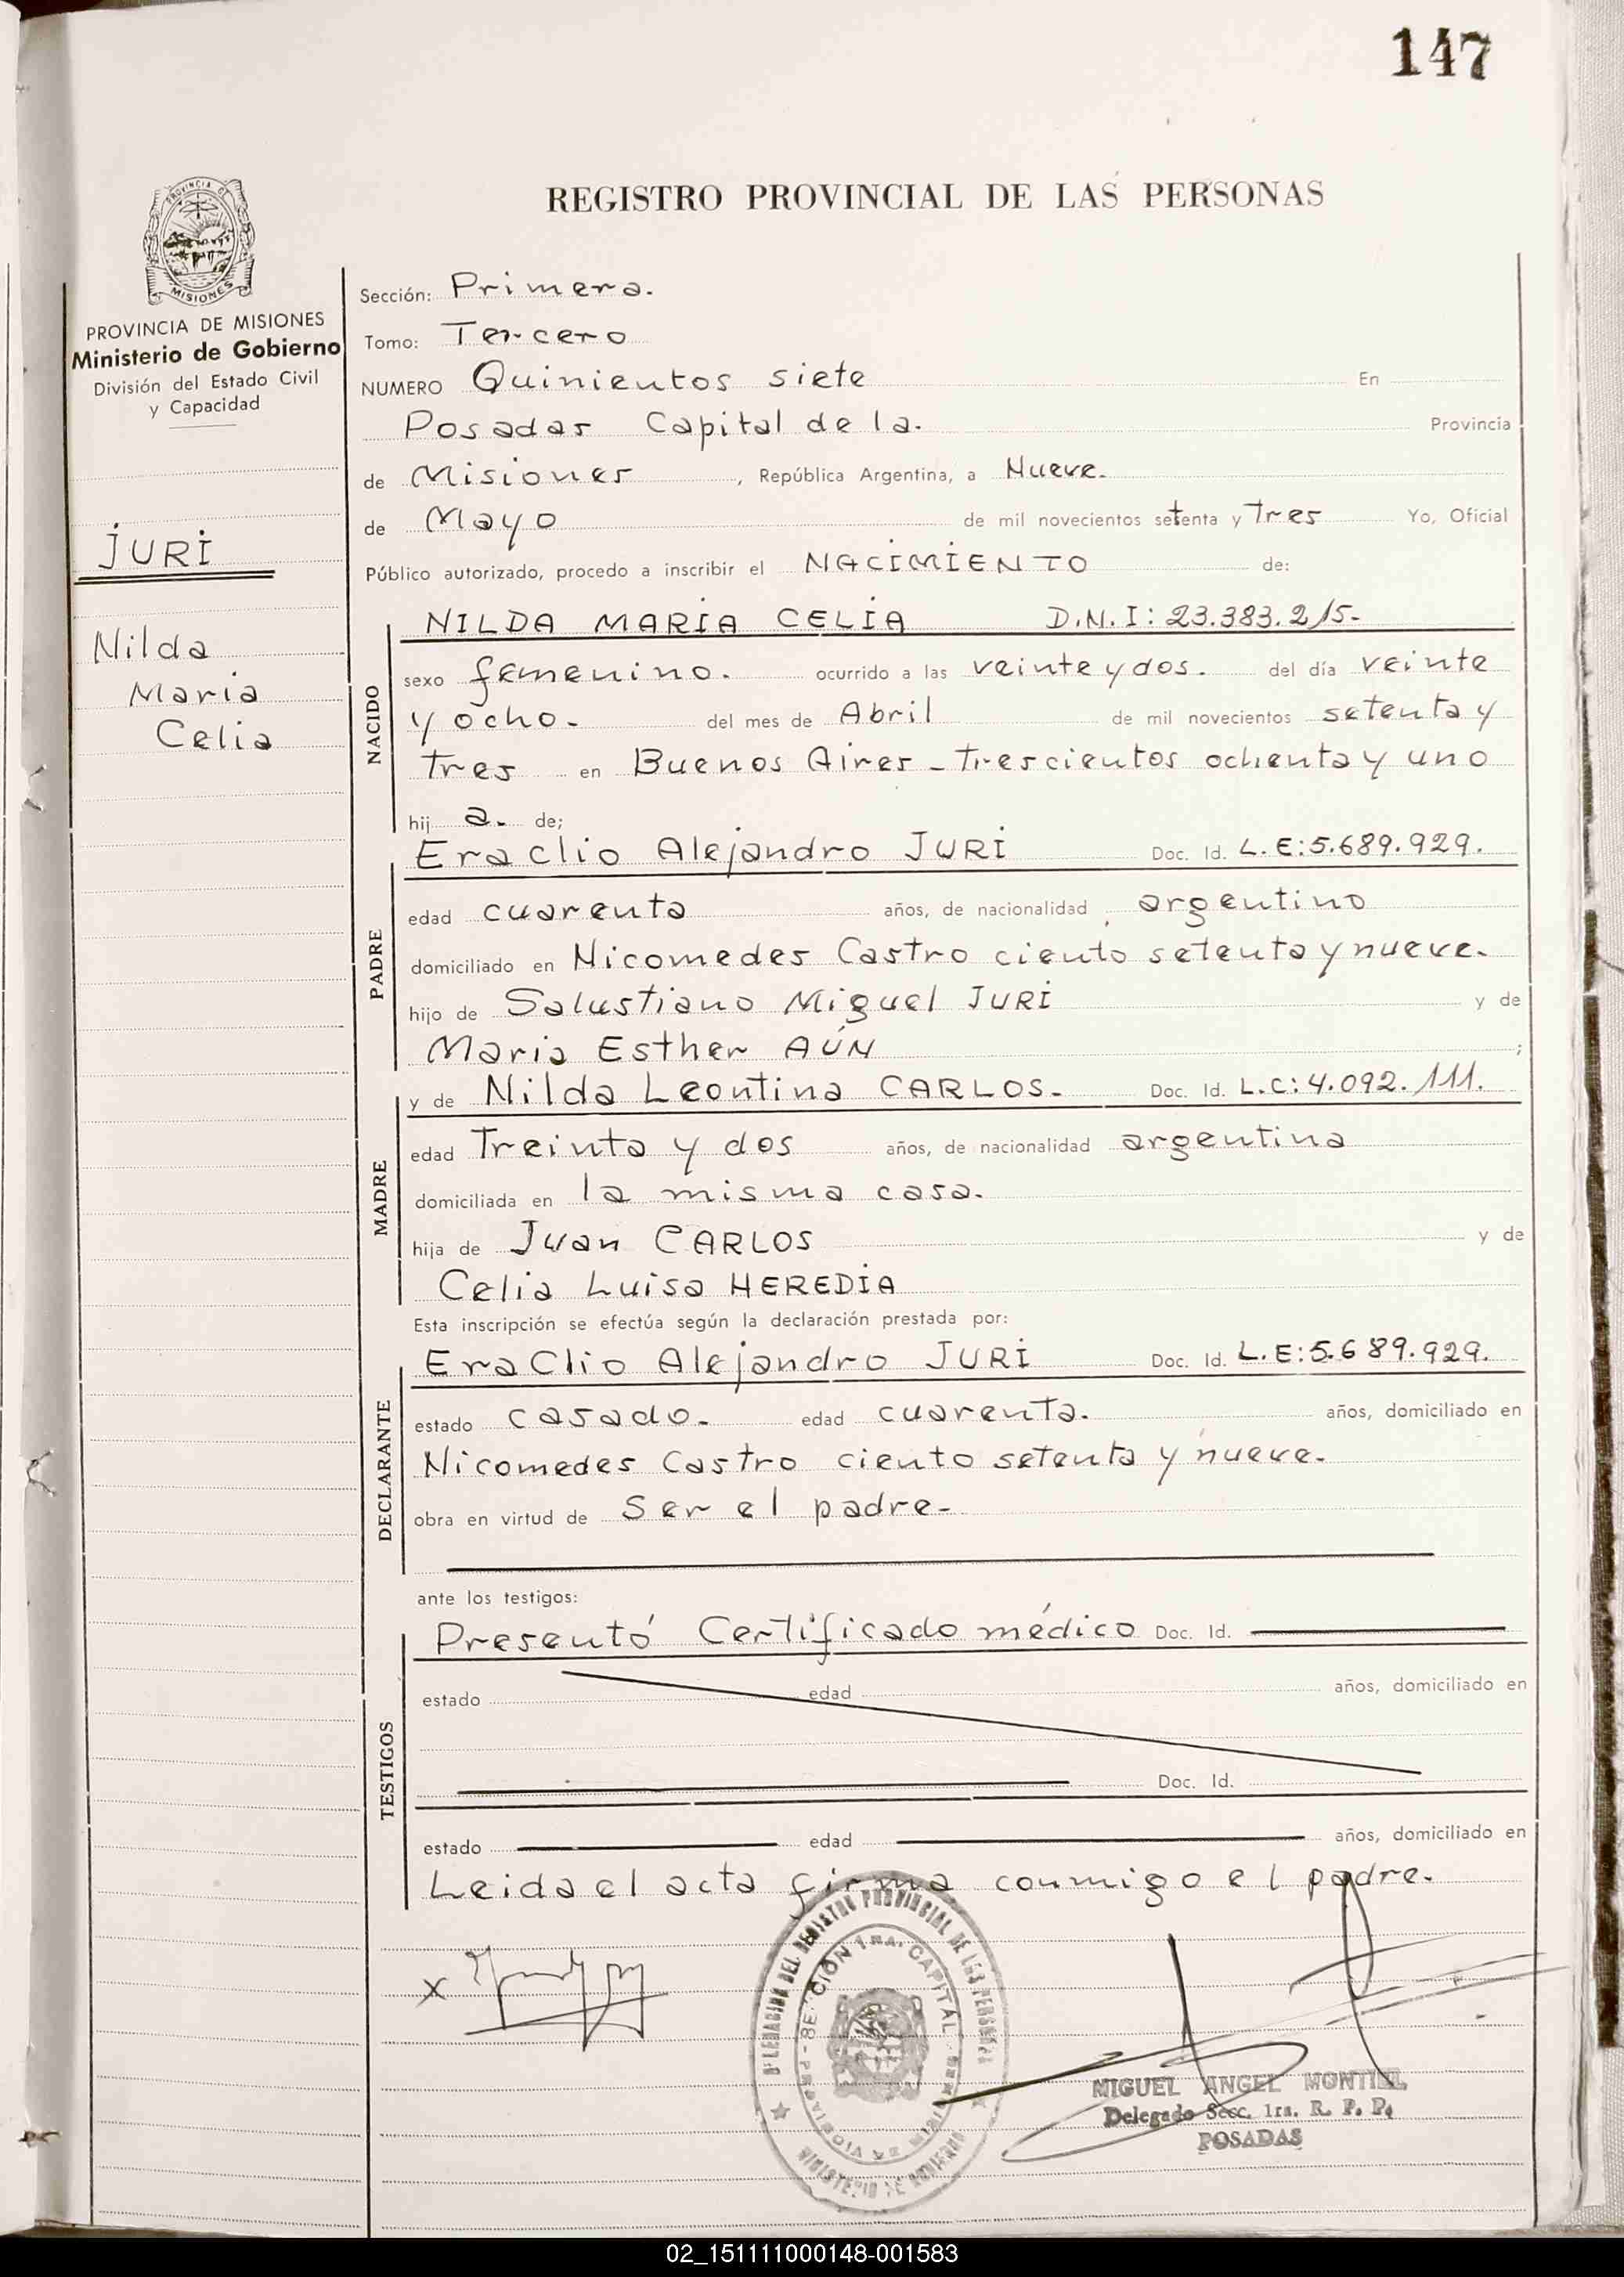 147
REGISTRO PROVINCIAL DE LAS PERSONAS
PROVINCIA DE
MISIONES
PROVINCIA DE MISIONES
Ministerio de Gobierno
División del Estado Civil
y Capacidad
JURI
Nilda
Maria
Celia
Sección: Primera.
Tomo: Tercero
NUMERO Quinientos siete En
Posadas Capital de la. Provincia
de Misiones, República Argentina, a Nueve.
de Mayo de mil novecientos setenta y Tres Yo, Oficial
Público autorizado, procedo a inscribir el NACIMIENTO de:
NACIDO
NILDA MARIA CELIA D.N.I: 23.383.215-
sexo femenino. ocurrido a las veinte y dos. del día veinte
y ocho- del mes de Abril de mil novecientos setenta y
tres en Buenos Aires - Trescientos ochenta y uno
hij a. de;
PADRE
Eraclio Alejandro JURI Doc. Id. L.E:5.689.929.
edad cuarenta años, de nacionalidad argentino
domiciliado en Nicomedes Castro ciento setenta y nueve.
hijo de Salustiano Miguel JURI y de
Maria Esther AÚN ;
MADRE
y de Nilda Leontina CARLOS- Doc. Id. L.C:4.092.111.
edad Treinta y dos años, de nacionalidad argentina
domiciliada en la misma casa.
hija de Juan CARLOS y de
Celia Luisa HEREDIA
Esta inscripción se efectúa según la declaración prestada por:
DECLARANTE
Eraclio Alejandro JURI Doc. Id. L.E:5.689.929.
estado casado- edad cuarenta. años, domiciliado en
Nicomedes Castro ciento setenta y nueve.
obra en virtud de Ser el padre-
ante los testigos:
TESTIGOS
Presentó Certificado médico Doc. Id.
estado edad años, domiciliado en
Doc. Id.
estado edad años, domiciliado en
Leida el acta firma conmigo el padre.
X
DELEGACION DEL REGISTRO PROVINCIAL DE LAS PERSONAS
SECCION 1RA. CAPITAL
MINISTERIO DE GOBIERNO
MIGUEL ANGEL MONTIEL
Delegado Secc. 1ra. R. P. P.
POSADAS
02_151111000148-001583